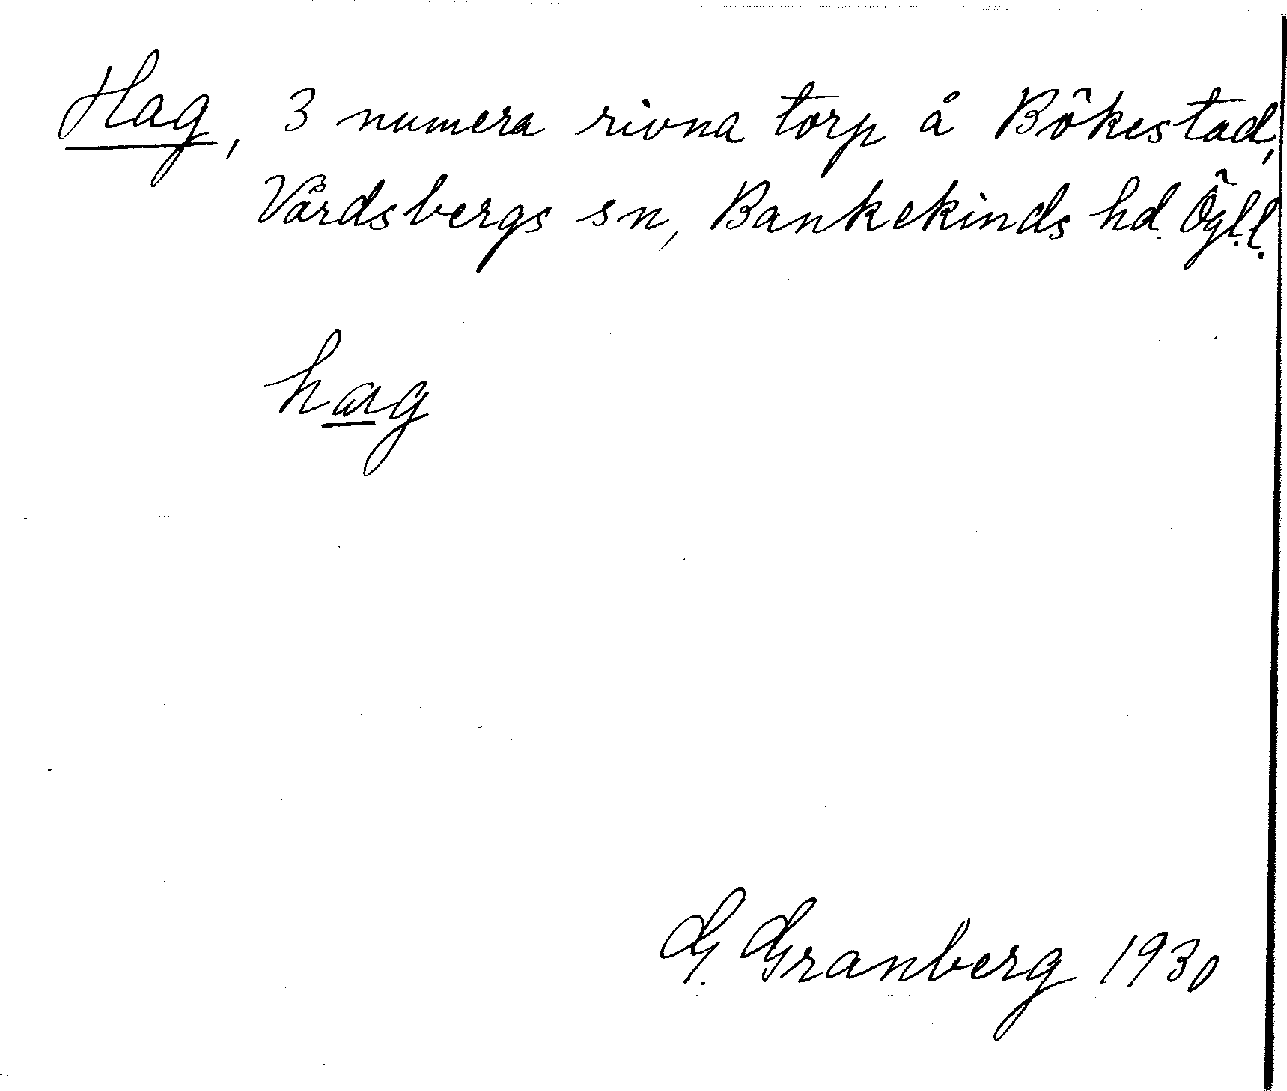 Hag, 3 numera rivna torp å Bökestad,
Vårdsbergs sn, Bankekinds hd. Ögl.l.
hag
G. Granberg 1930